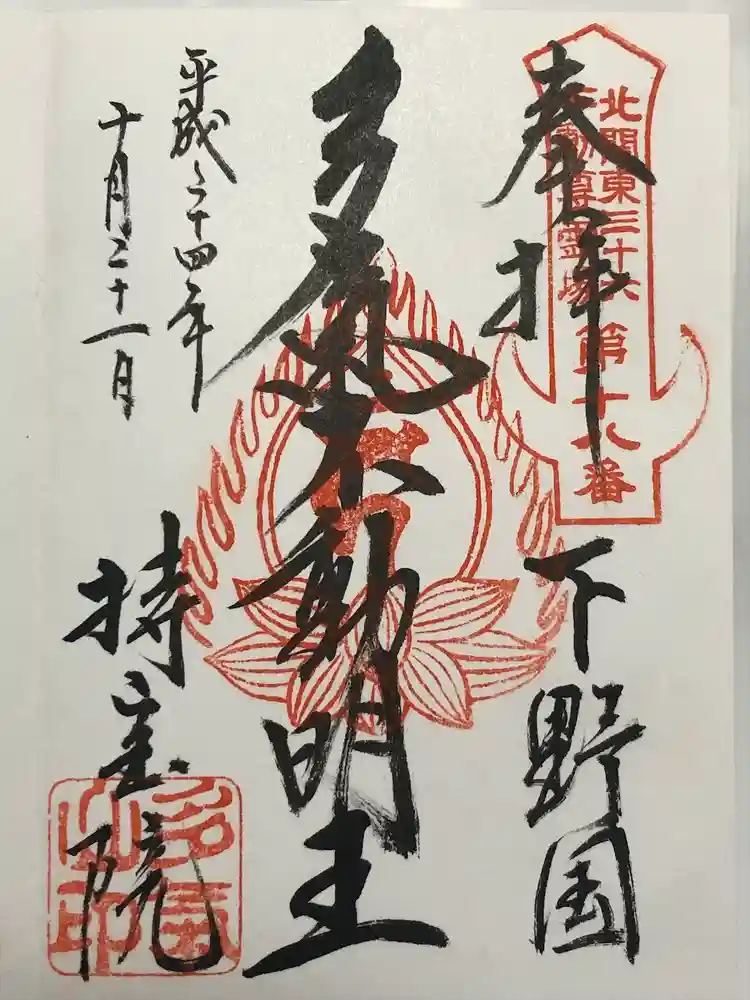 奉拝
下野国
北関東三十六
不動尊霊場
第十八番
多気不動明王
平成二十四年
十月二十一日
持宝院
多気山印